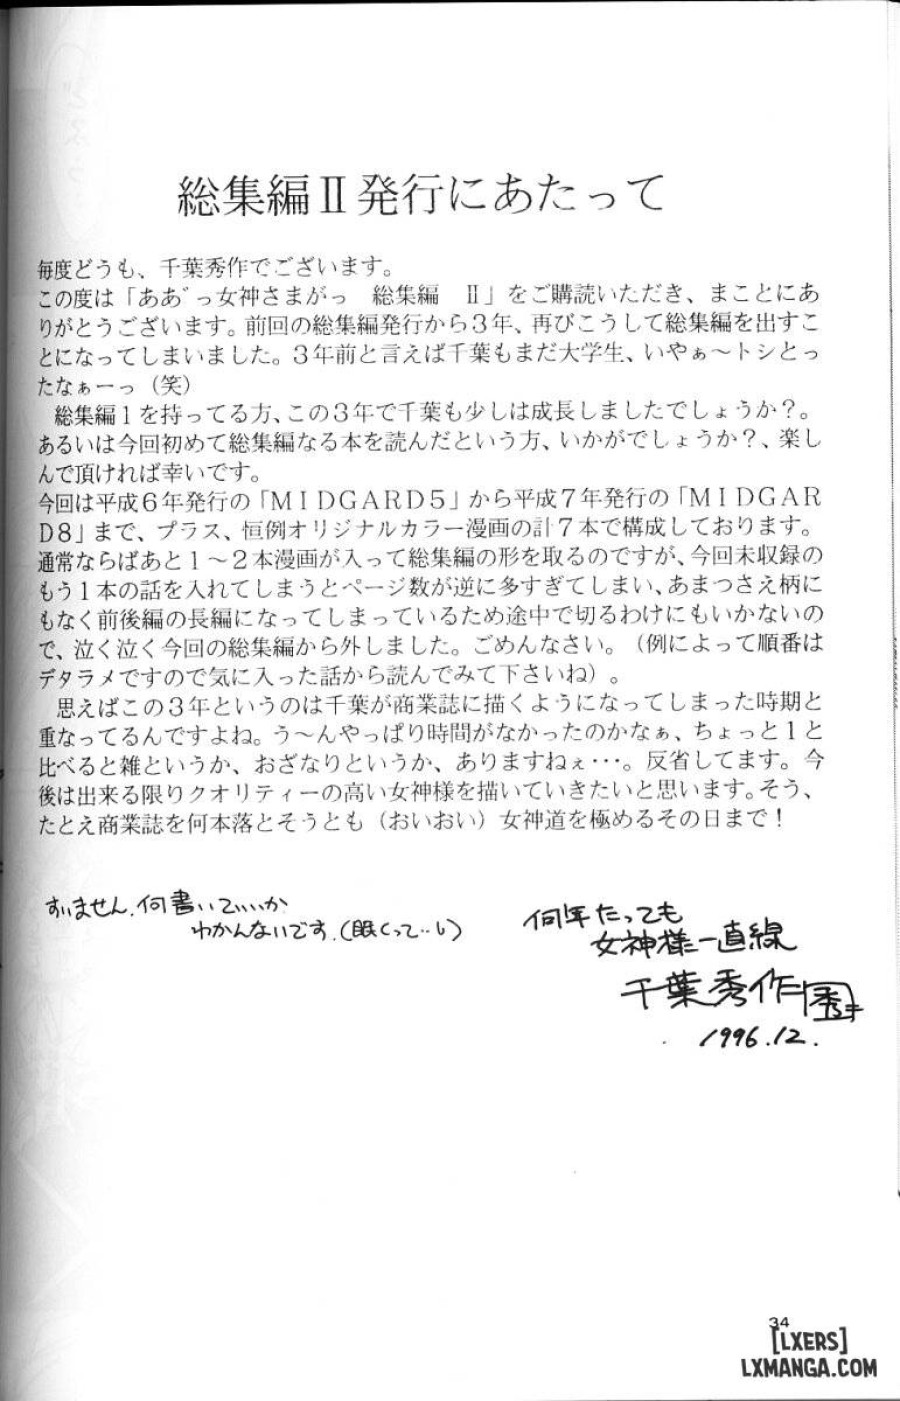 総集編Ⅱ発行にあたって
毎度どうも、千葉秀作でございます。
この度は「ああ゛っ女神さまがっ　総集編　Ⅱ」をご購読いただき、まことにあ
りがとうございます。前回の総集編発行から３年、再びこうして総集編を出すこ
とになってしまいました。３年前と言えば千葉もまだ大学生、いやぁ～トシとっ
たなぁーっ（笑）
　総集編１を持ってる方、この３年で千葉も少しは成長しましたでしょうか？。
あるいは今回初めて総集編なる本を読んだという方、いかがでしょうか？、楽し
んで頂ければ幸いです。
今回は平成６年発行の「ＭＩＤＧＡＲＤ５」から平成７年発行の「ＭＩＤＧＡＲ
Ｄ８」まで、プラス、恒例オリジナルカラー漫画の計７本で構成しております。
通常ならばあと１～２本漫画が入って総集編の形を取るのですが、今回未収録の
もう１本の話を入れてしまうとページ数が逆に多すぎてしまい、あまつさえ柄に
もなく前後編の長編になってしまっているため途中で切るわけにもいかないの
で、泣く泣く今回の総集編から外しました。ごめんなさい。（例によって順番は
デタラメですので気に入った話から読んでみて下さいね）。
　思えばこの３年というのは千葉が商業誌に描くようになってしまった時期と
重なってるんですよね。う～んやっぱり時間がなかったのかなぁ、ちょっと１と
比べると雑というか、おざなりというか、ありますねぇ･･･。反省してます。今
後は出来る限りクオリティーの高い女神様を描いていきたいと思います。そう、
たとえ商業誌を何本落とそうとも（おいおい）女神道を極めるその日まで！
すいません、何書いていいか
わかんないです.(眠くって‥し)
何年たっても
女神様一直線
千葉秀作 秀
1996.12.
34
[LXERS]
LXMANGA.COM